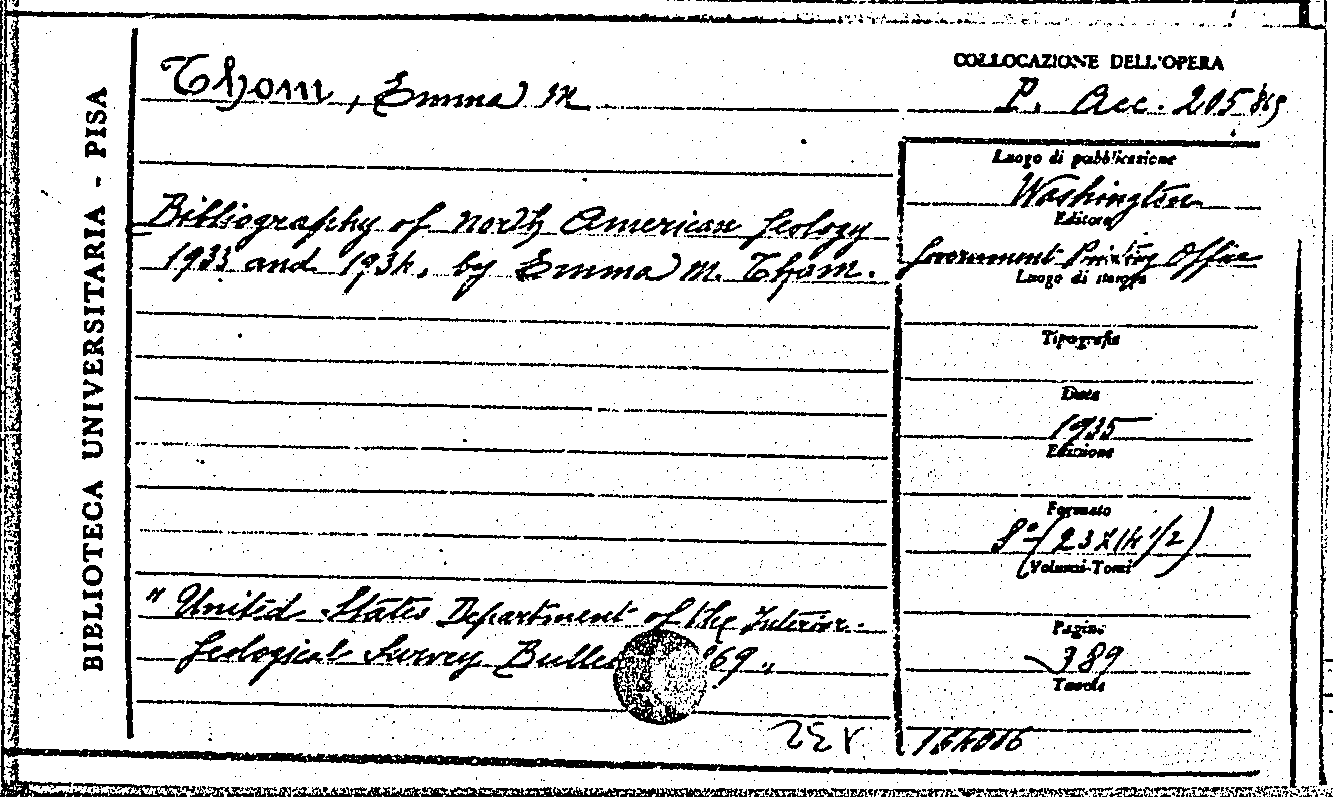 BIBLIOTECA UNIVERSITARIA - PISA
Thom, Emma M
COLLOCAZIONE DELL'OPERA
P. Acc. 205
Bibliography of North American Geology
1933 and 1934, by Emma M. Thom.
Luogo di pubblicazione
Washington
Editore
Government Printing Office
Luogo di stampa
Tipografia
Data
1935
Edizione
Formato
8° (23x14 1/2)
Volumi-Tomi
Pagine
389
Tavole
" United States Department of the Interior.
Geological Survey 69 "